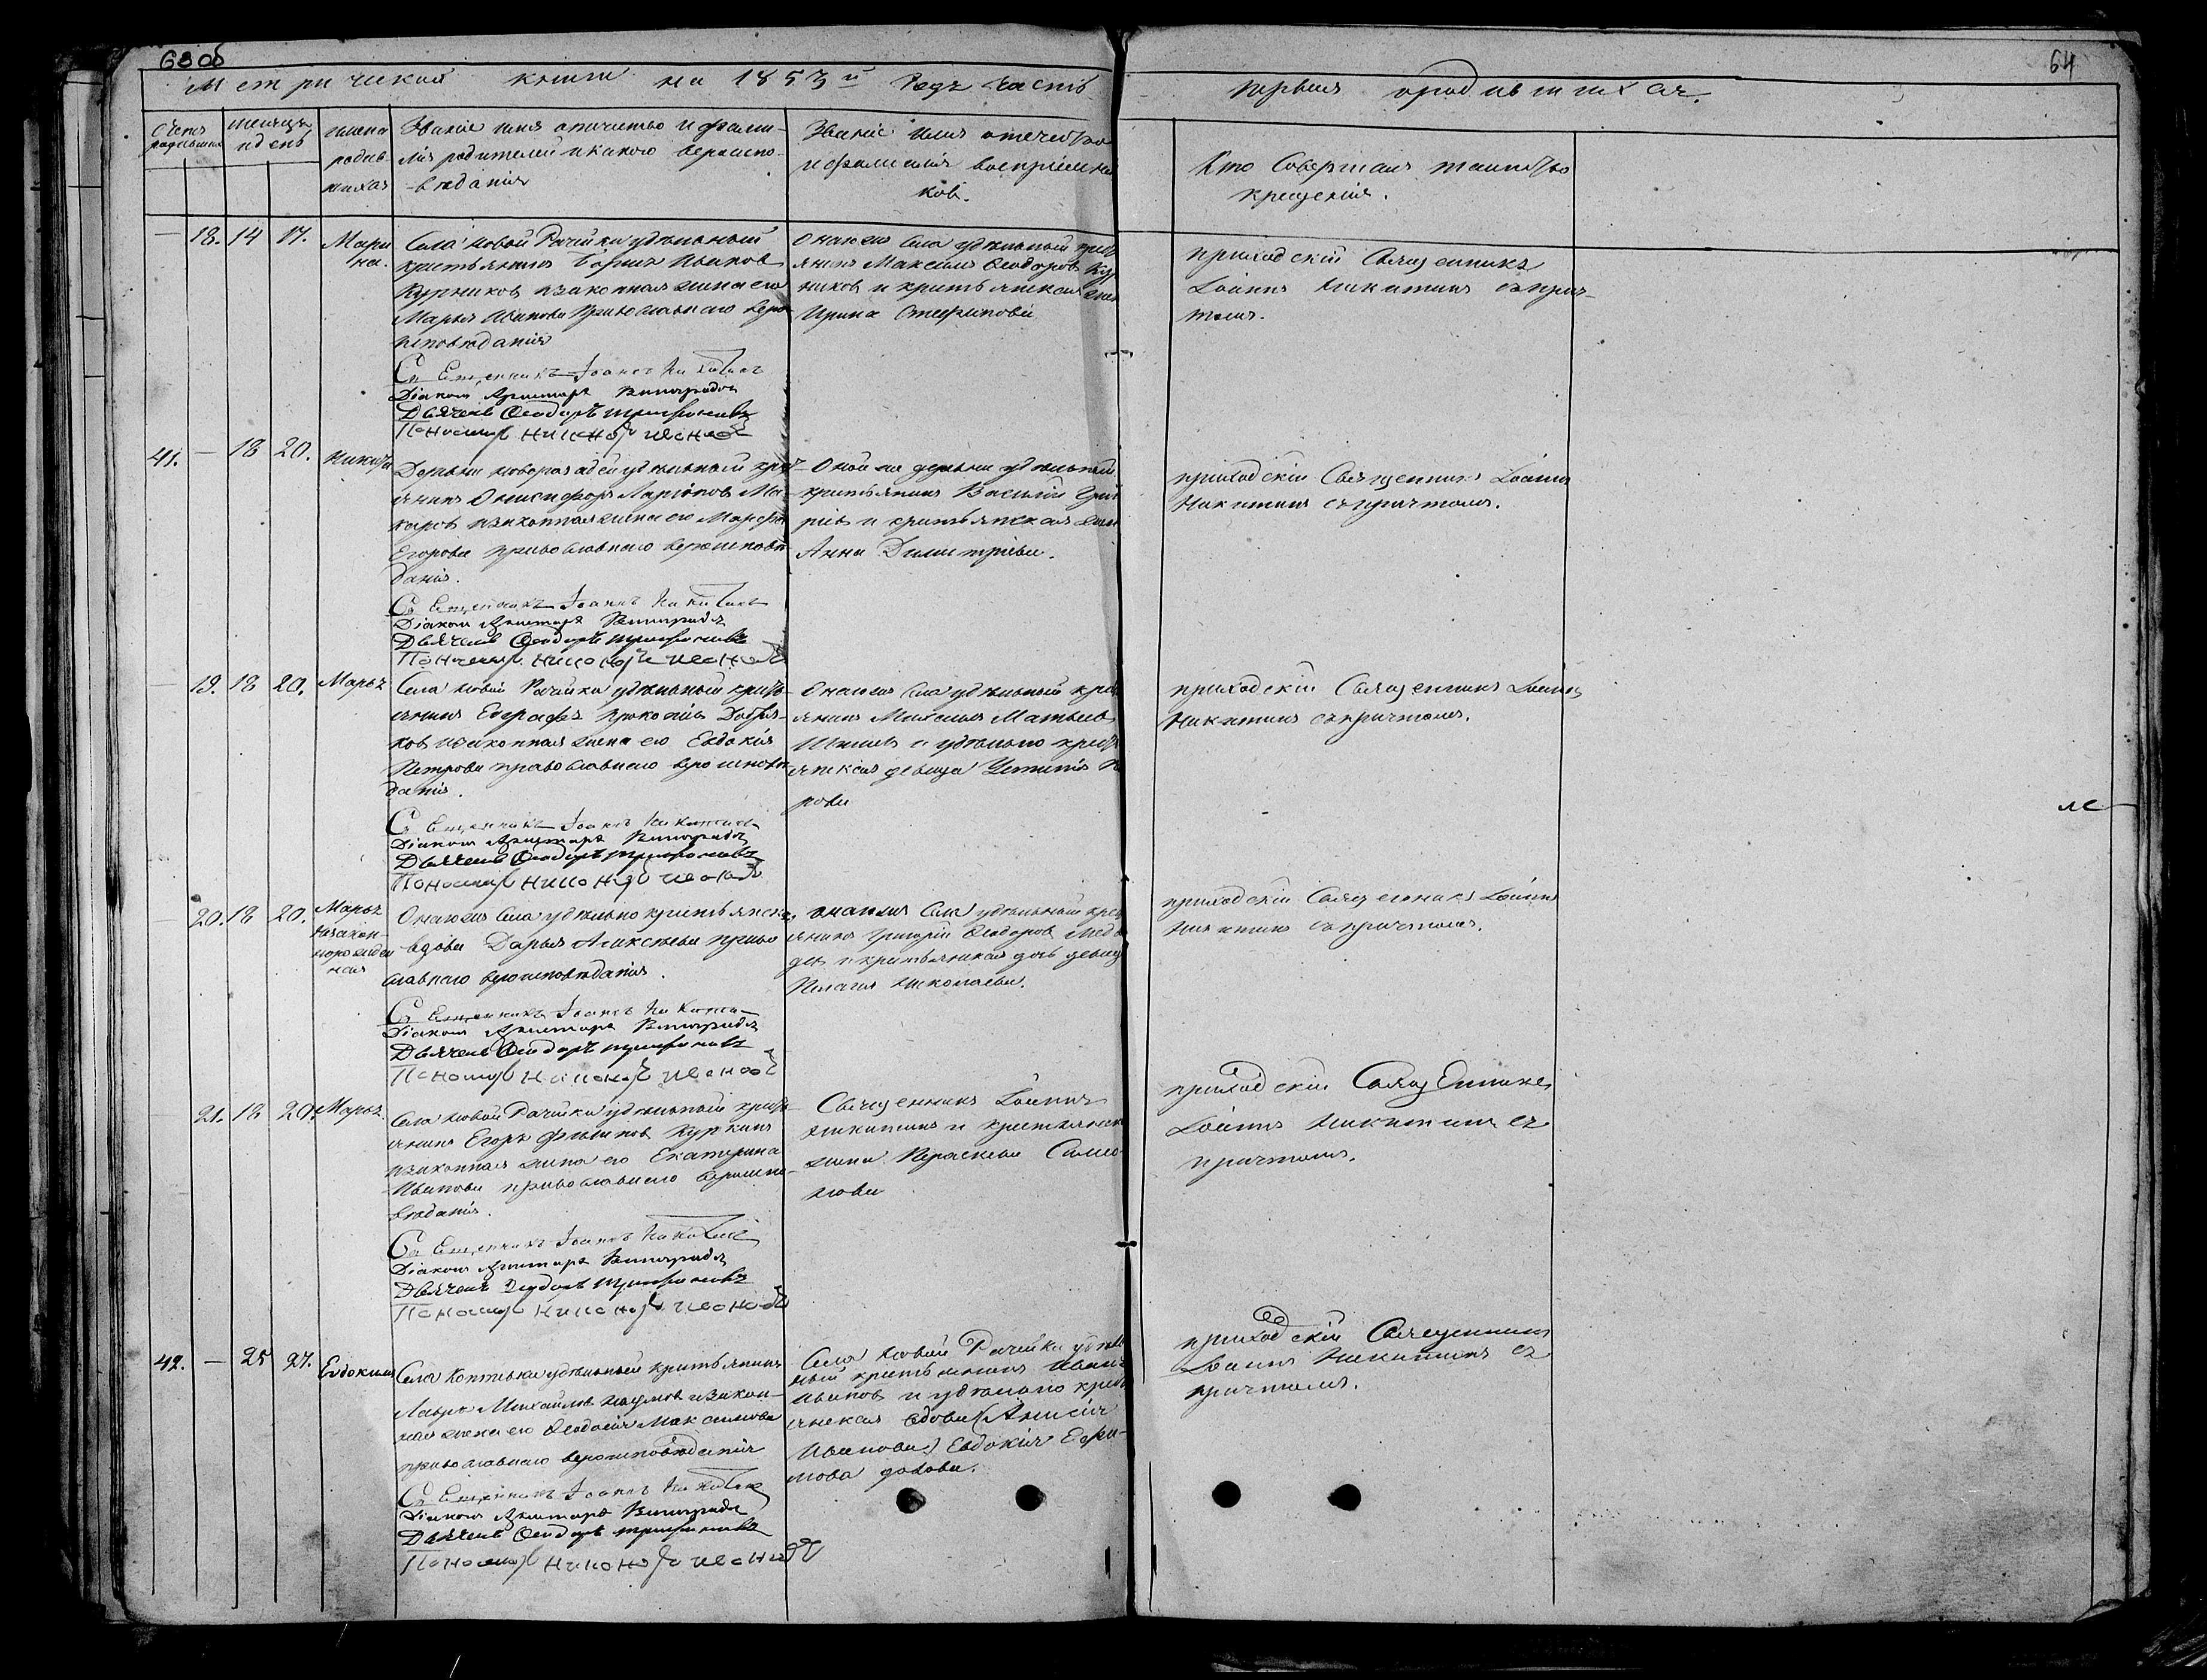 63об
64
Метрической книги на 1853й годъ часть
первая о родившихся.
счетъ родившихся
месяцъ и день
имена родив-
шихся
Званіе имя отчество и фами-
лія родителей и какого вероиспо-
-веданія
Званіе имя отечество
и фамилія воспріемни
ковъ.
Кто совершалъ таинство
крещенія.
— 18. 14 17.
Мари
на.
Села новой Рачейки удельный
крестьянинъ Иванов
Курников и законная жена его
Марья Иванова Православнаго веро
исповеданія
Священникъ Іоаннъ Никитинъ
Діаконъ Виноградов
Дьячекъ Феодоръ Трифоновъ
Пономарь Никоноръ
Онагожъ села удельный крес
янинъ Максимъ Феодоровъ Кур
ников и крестьянская жена
Ирина
приходскій Священникъ
Іоаннъ Никитинъ съ прич-
томъ.
41. — 18 20.
Никита
Деревни удельный крес
янинъ Онисифоръ Ларіонов Ма
каров и законная жена его Марфа
Егорова православнаго вероисповѣ
данія.
Священникъ Іоаннъ Никитинъ
Діаконъ Виноградов
Дьячекъ Феодоръ Трифоновъ
Пономарь Никоноръ
Оной же деревни удельный
крестьянинъ Василій Григ
рьев и крестьянская жена
Анна Димитріева.
приходскій Священникъ Іоаннъ
Никитинъ съ причтомъ.
— 19. 18 20.
Марья
Села новой Рачейки удельный кресть
янинъ Евграфъ Прокопьев
ков и законная жена его Евдокія
Петрова православнаго вероисповѣ
данія.
Священникъ Іоаннъ Никитинъ
Діаконъ Виноградов
Дьячекъ Феодоръ Трифоновъ
Пономарь Никоноръ
Онагожъ села удельный крес
янинъ Матвеев
и удельно крест
янская девица
рова
приходскій Священникъ Іоаннъ
Никитинъ съ причтомъ.
ле
— 20. 18 20.
Марья
незакон-
норожден
ная
Онагожъ села удельно крестьянска
вдова Дарья Алексеева право
славнаго вероисповеданія.
Священникъ Іоаннъ Никити
Діаконъ Виноградов
Дьячекъ Феодоръ Трифоновъ
Пономарь Никоноръ
Онагожъ села удельный крес
янинъ Григорій Феодоров Медв
дев и крестьянская дочь девица
Пелагея Николаева.
приходскій Священникъ Іоаннъ
Никитинъ съ причтомъ.
21. 18 20.
Марья
Села новой Рачейки удельный кресть
янинъ Егоръ Филипов Куркинъ
и законная жена его Екатерина
Иванова православнаго вероиспо-
веданія.
Священникъ Іоаннъ Никитинъ
Діаконъ Виноградов
Дьячекъ Феодоръ Трифоновъ
Пономарь Никоноръ
Священникъ Іоаннъ
Никитинъ и крестьянска
жена Параскева Само
лова
приходскій Священникъ
Іоаннъ Никитинъ съ
причтомъ.
42. — 25 27.
Евдокимъ
Села удельный крестьянинъ
Лавръ Михайлов Наумов и закон-
ная жена его Феодосія Максимова
православнаго вероисповеданія
Священникъ Іоаннъ Никитинъ
Діаконъ Виноградов
Дьячекъ Феодоръ Трифоновъ
Пономарь Никоноръ
Села новой Рачейки удель
ный крестьянинъ Иванъ
Иванов и удельно крест
янская вдова (Анисія
Иванова) Евдокія Ефи-
мова
приходскій Священникъ
Іоаннъ Никитинъ съ
причтомъ.